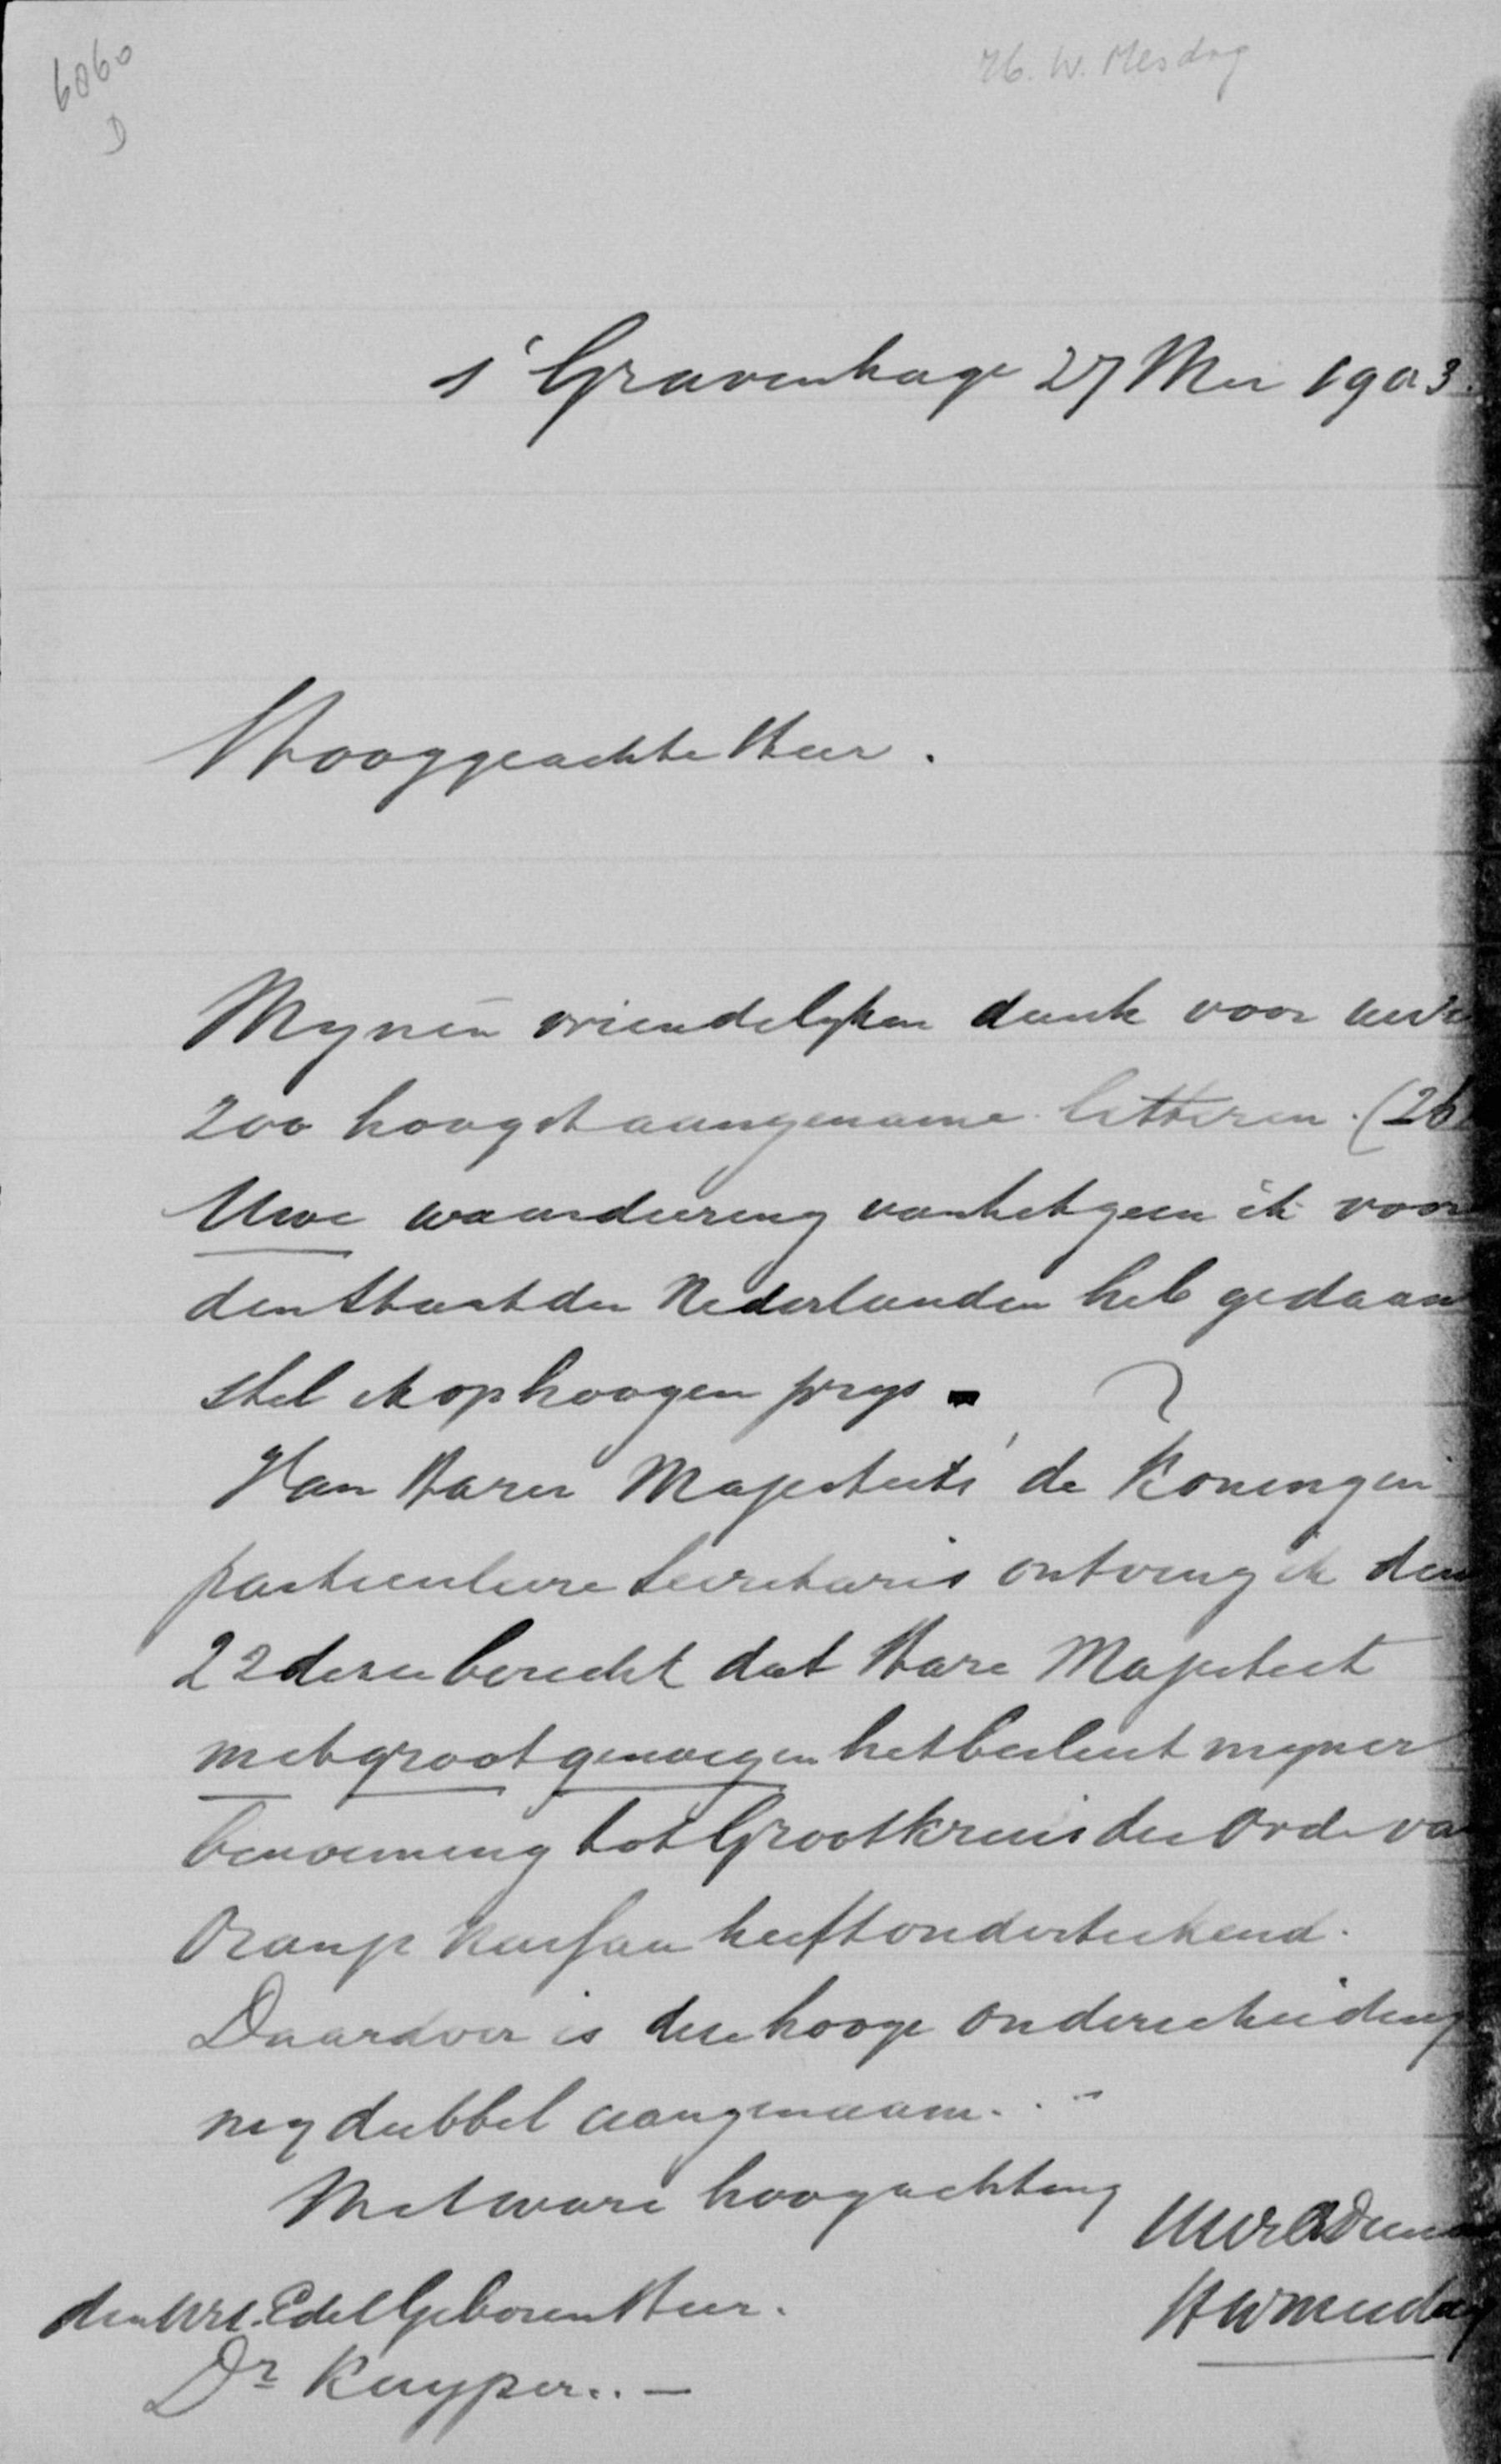 6060
D
H. W. Mesdag
s' Gravenhage 27 Mei 1903.
Hooggeachte Heer.
Mynen vriendelyken dank voor uwe
zoo hoogst aangename letteren. (26
Uwe waardeering van hetgeen ik voor
den Staat der Nederlanden heb gedaan
stel ik op hoogen prys.
Van Harer Majesteits' de Koningin
particuliere Secretaris ontving ik den
22 dezer bericht dat Hare Majesteit
met groot genoegen het besluit myner
benoeming tot Grootkruis der Orde va
Oranje Nassau heeft onderteekend.
Daardoor is deze hooge onderscheiding
my dubbel aangenaam.
Met ware hoogachting
Uw
HWMesdag
den Wel. Edel Geboren Heer.
Dr Kuyper.. —